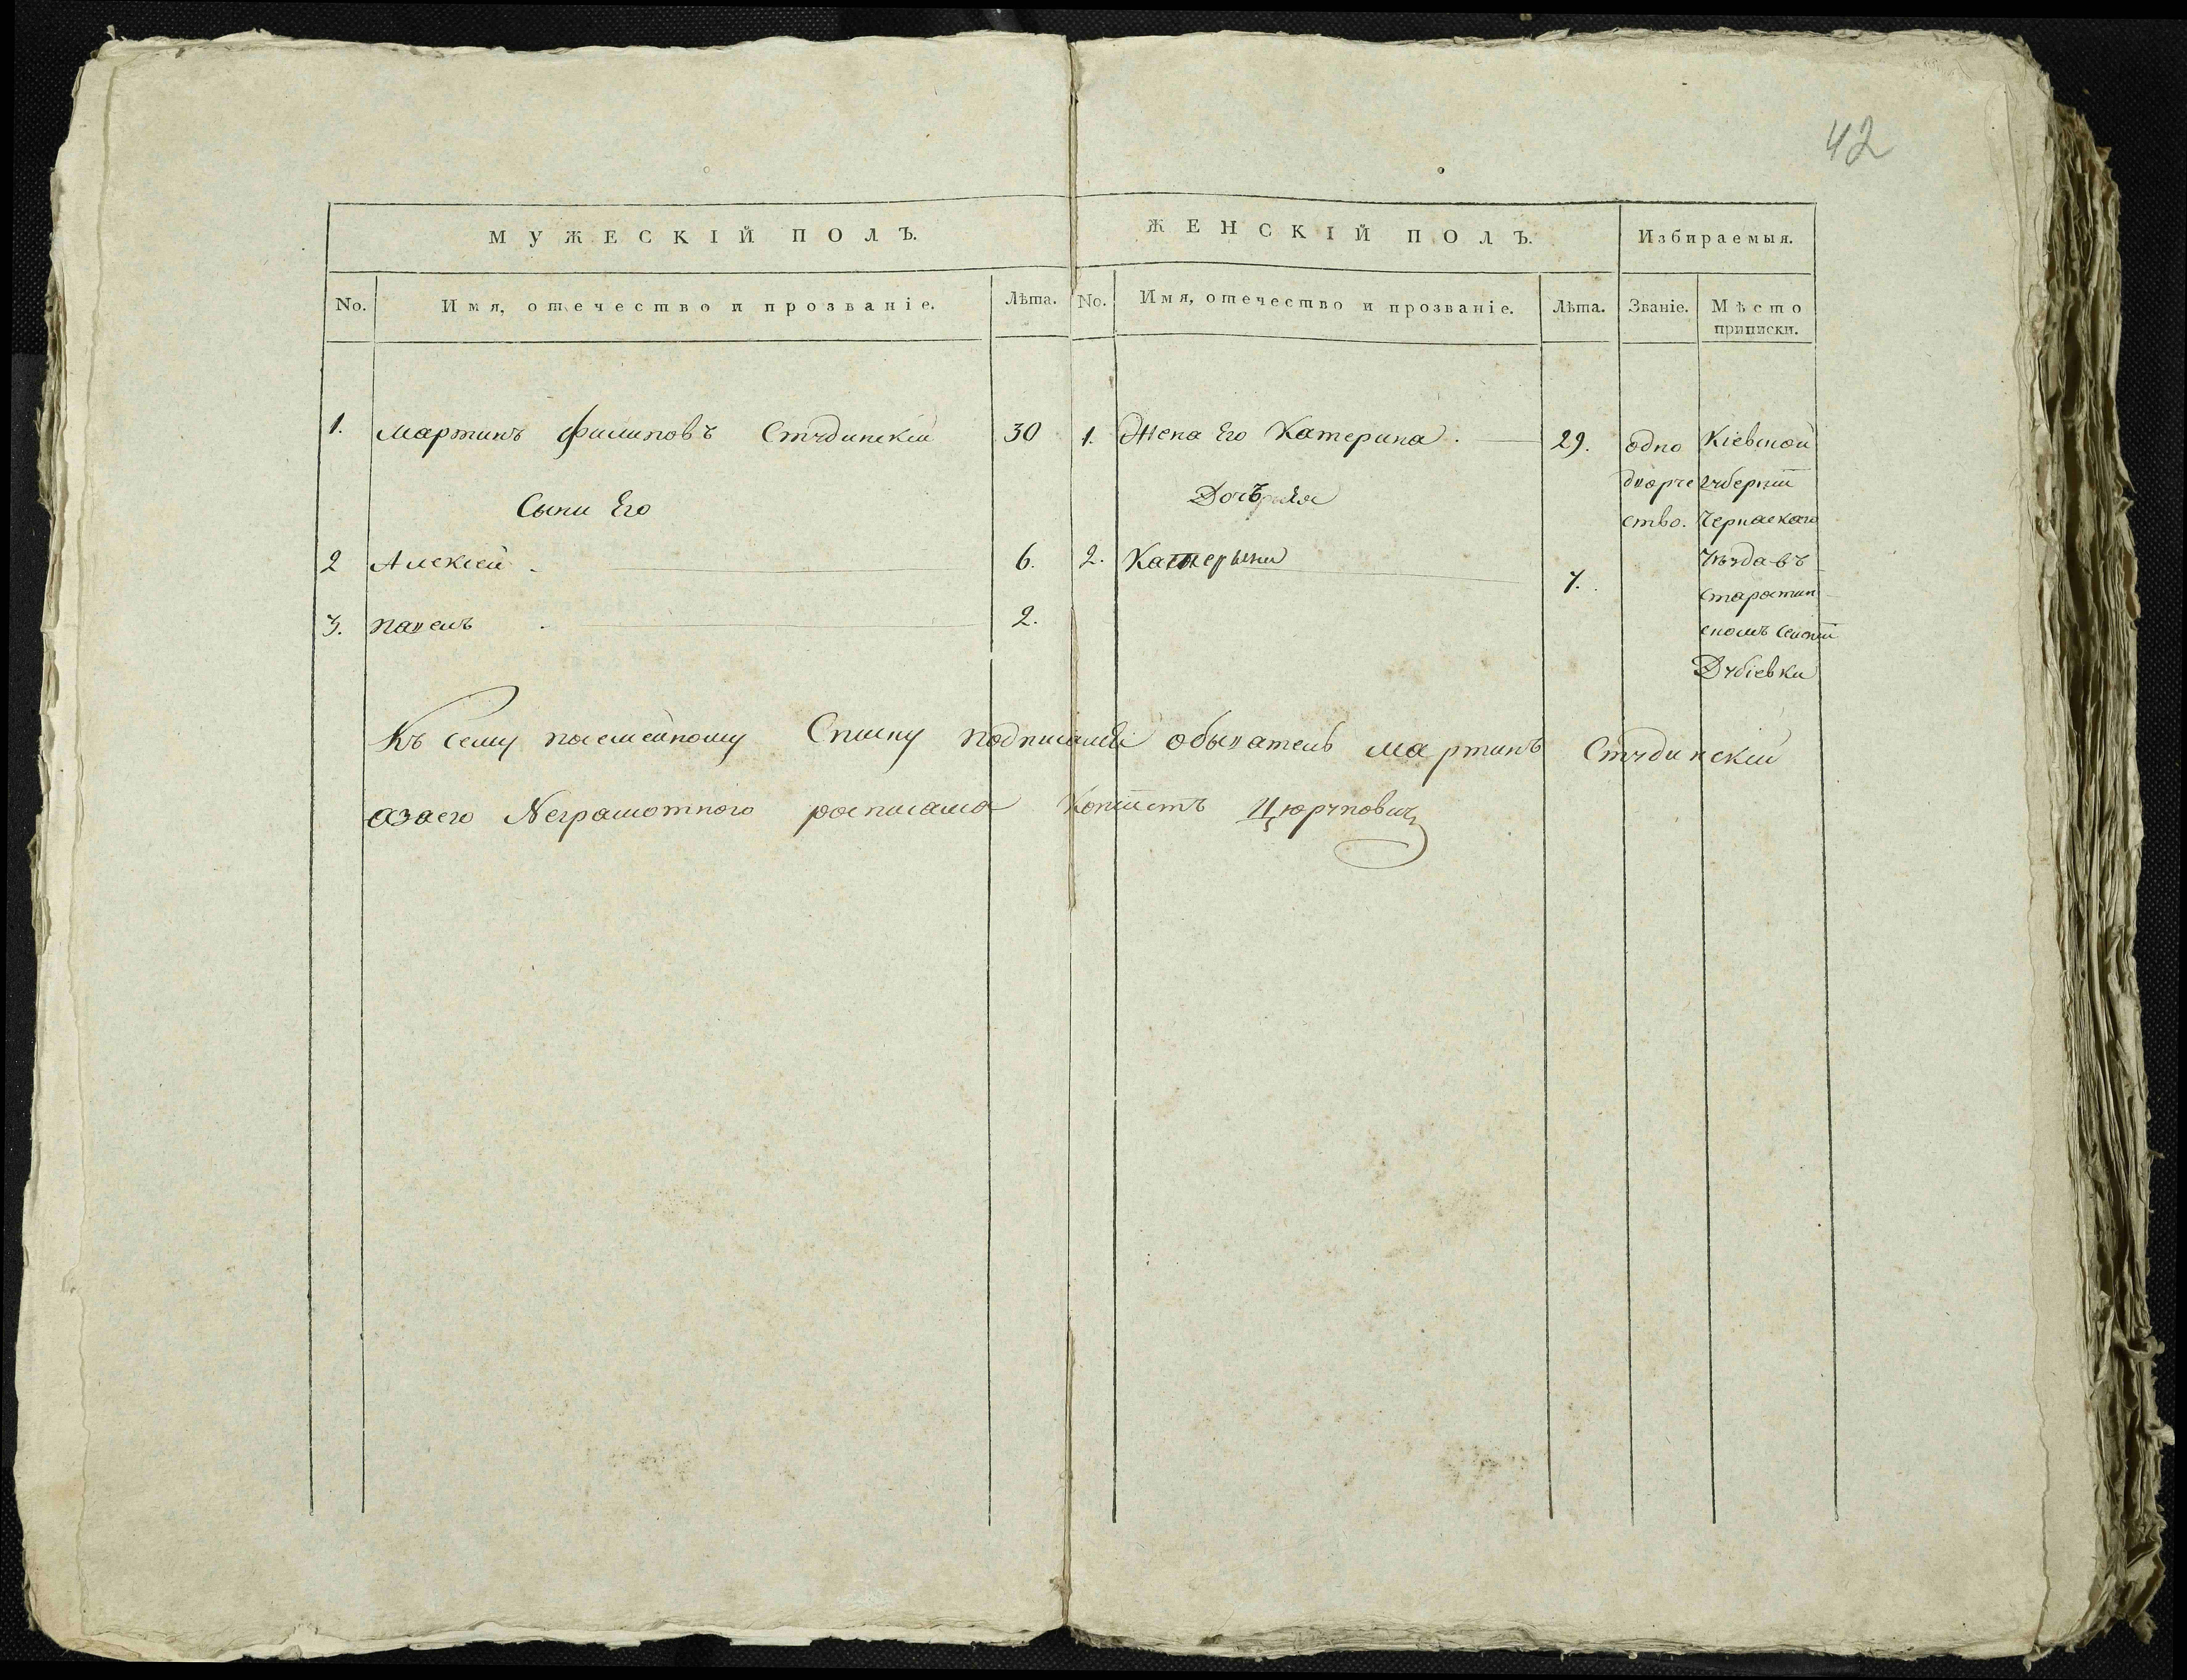 42
МУЖЕСКІЙ ПОЛЪ. ЖЕНСКІЙ ПОЛЪ. Избираемыя.
No. Имя, отечество и прозваніе. Лѣта. No. Имя, отечество и прозваніе. Лѣта. Званіе. Мѣсто приписки.
1. Мартинъ Филиповъ Студинскій 30 1. Жена Его Катерина. 29. одно Кіевской
дворче губерніи
Сыни Его Дочъ
ство. Черкаскаго
2 Алексѣй 6. 2. Катерини 7. уѣзда въ
старостин
3. Павелъ 2. скомъ селеніи
Дубіевки
Къ Сему посемейному Списку подписался обыватель Мартинъ Студинскій
а за его Неграмотного росписался Копіистъ Цюрупович